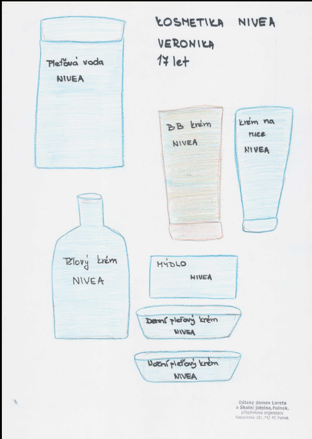 KOSMETIKA NIVEA
VERONIKA
17 let
Pleťová voda
NIVEA
BB krém
NIVEA
krém na
ruce
NIVEA
Tělový krém
NIVEA
MÝDLO
NIVEA
Denní pleťový krém
NIVEA
Noční pleťový krém
NIVEA
Dětský domov Loreta
a školní jídelna, Fulnek,
příspěvková organizace